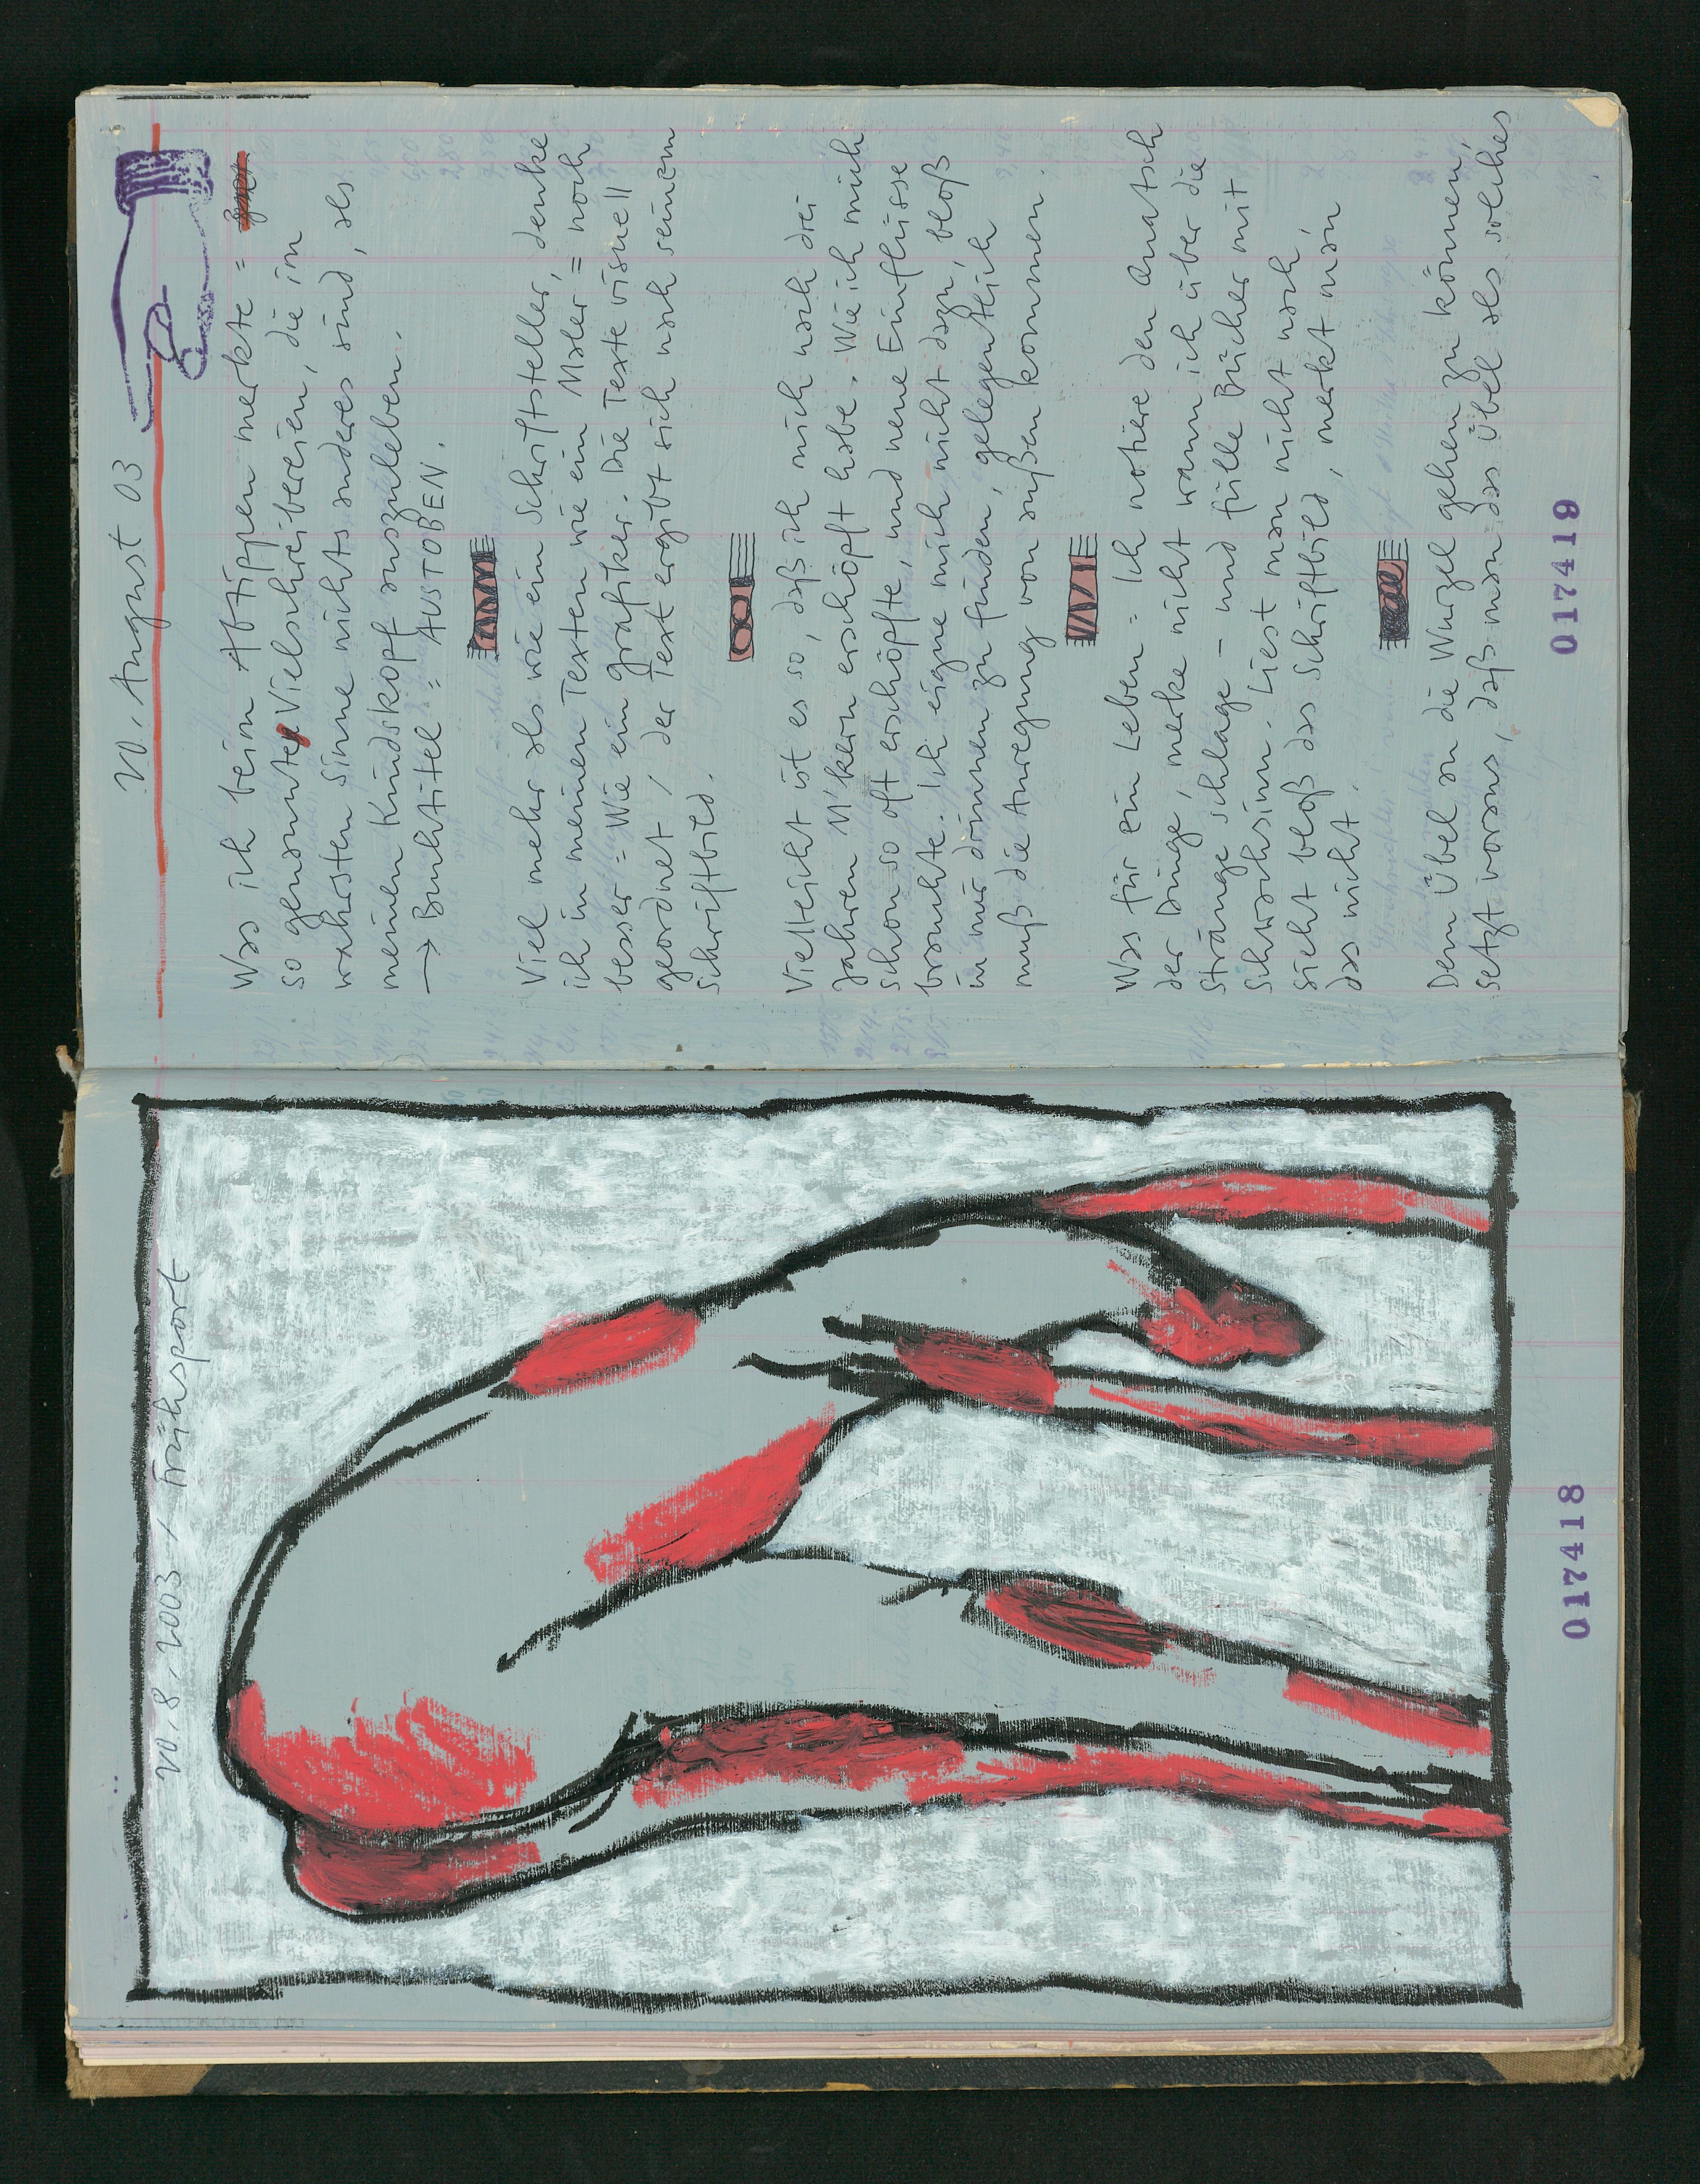 20.8.2003 / Frühsport
017418
20. August 03
Was ich beim Abtippen merkte =
so genannte Vielschreibereien, die im
wahrsten Sinne nichts anderes sind, als
meinen Kindskopf auszuleben.
→ Buchtitel = AUSTOBEN.
Viel mehr als wie ein Schriftsteller, denke
ich in meinen Texten wie ein Maler = noch
besser = Wie ein Grafiker. Die Texte visuell
geordnet, der Text ergibt sich nach seinem
Schriftbild.
Vielleicht ist es so, daß ich mich nach drei
Jahren M'kern erschöpft habe. Wie ich mich
schon so oft erschöpfte, und neue Einflüsse
brauchte. Ich eigne mich nicht dazu, bloß
in mir drinnen zu finden, gelegentlich
muß die Anregung von außen kommen.
Was für ein Leben = Ich notiere den Quatsch
der Dinge, merke nicht wann ich über die
Stränge schlage – und fülle Bücher mit
Schwachsinn. Liest man nicht nach,
sieht bloß das Schriftbild, merkt man
das nicht.
Dem Übel an die Wurzel gehen zu können,
setzt voraus, daß man das Übel als solches
017419